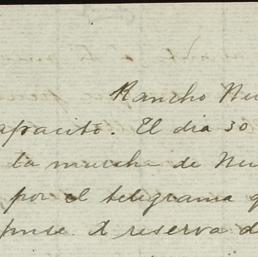 Rancho Nu
apacito. El dia 30
la marcha de Nu
por el telegrama q
puse á reserva d